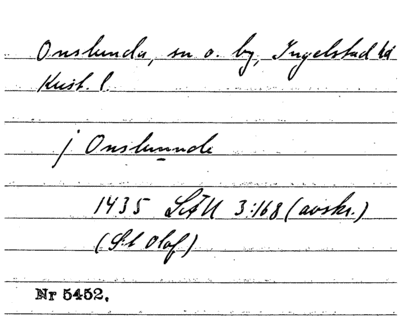 Onslunda, sn o. by, Ingelstad hd
Krist. l.
j Onslunnde
1435 LÄU 3:168 (avskr.)
(S:t Olof)
Nr 5452.